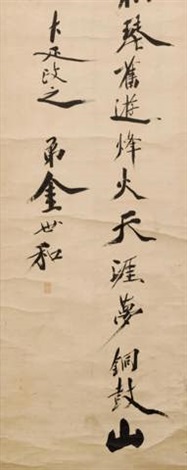 琴舊遊烽火天涯夢銅鼓山
卜延政之
弟金世和